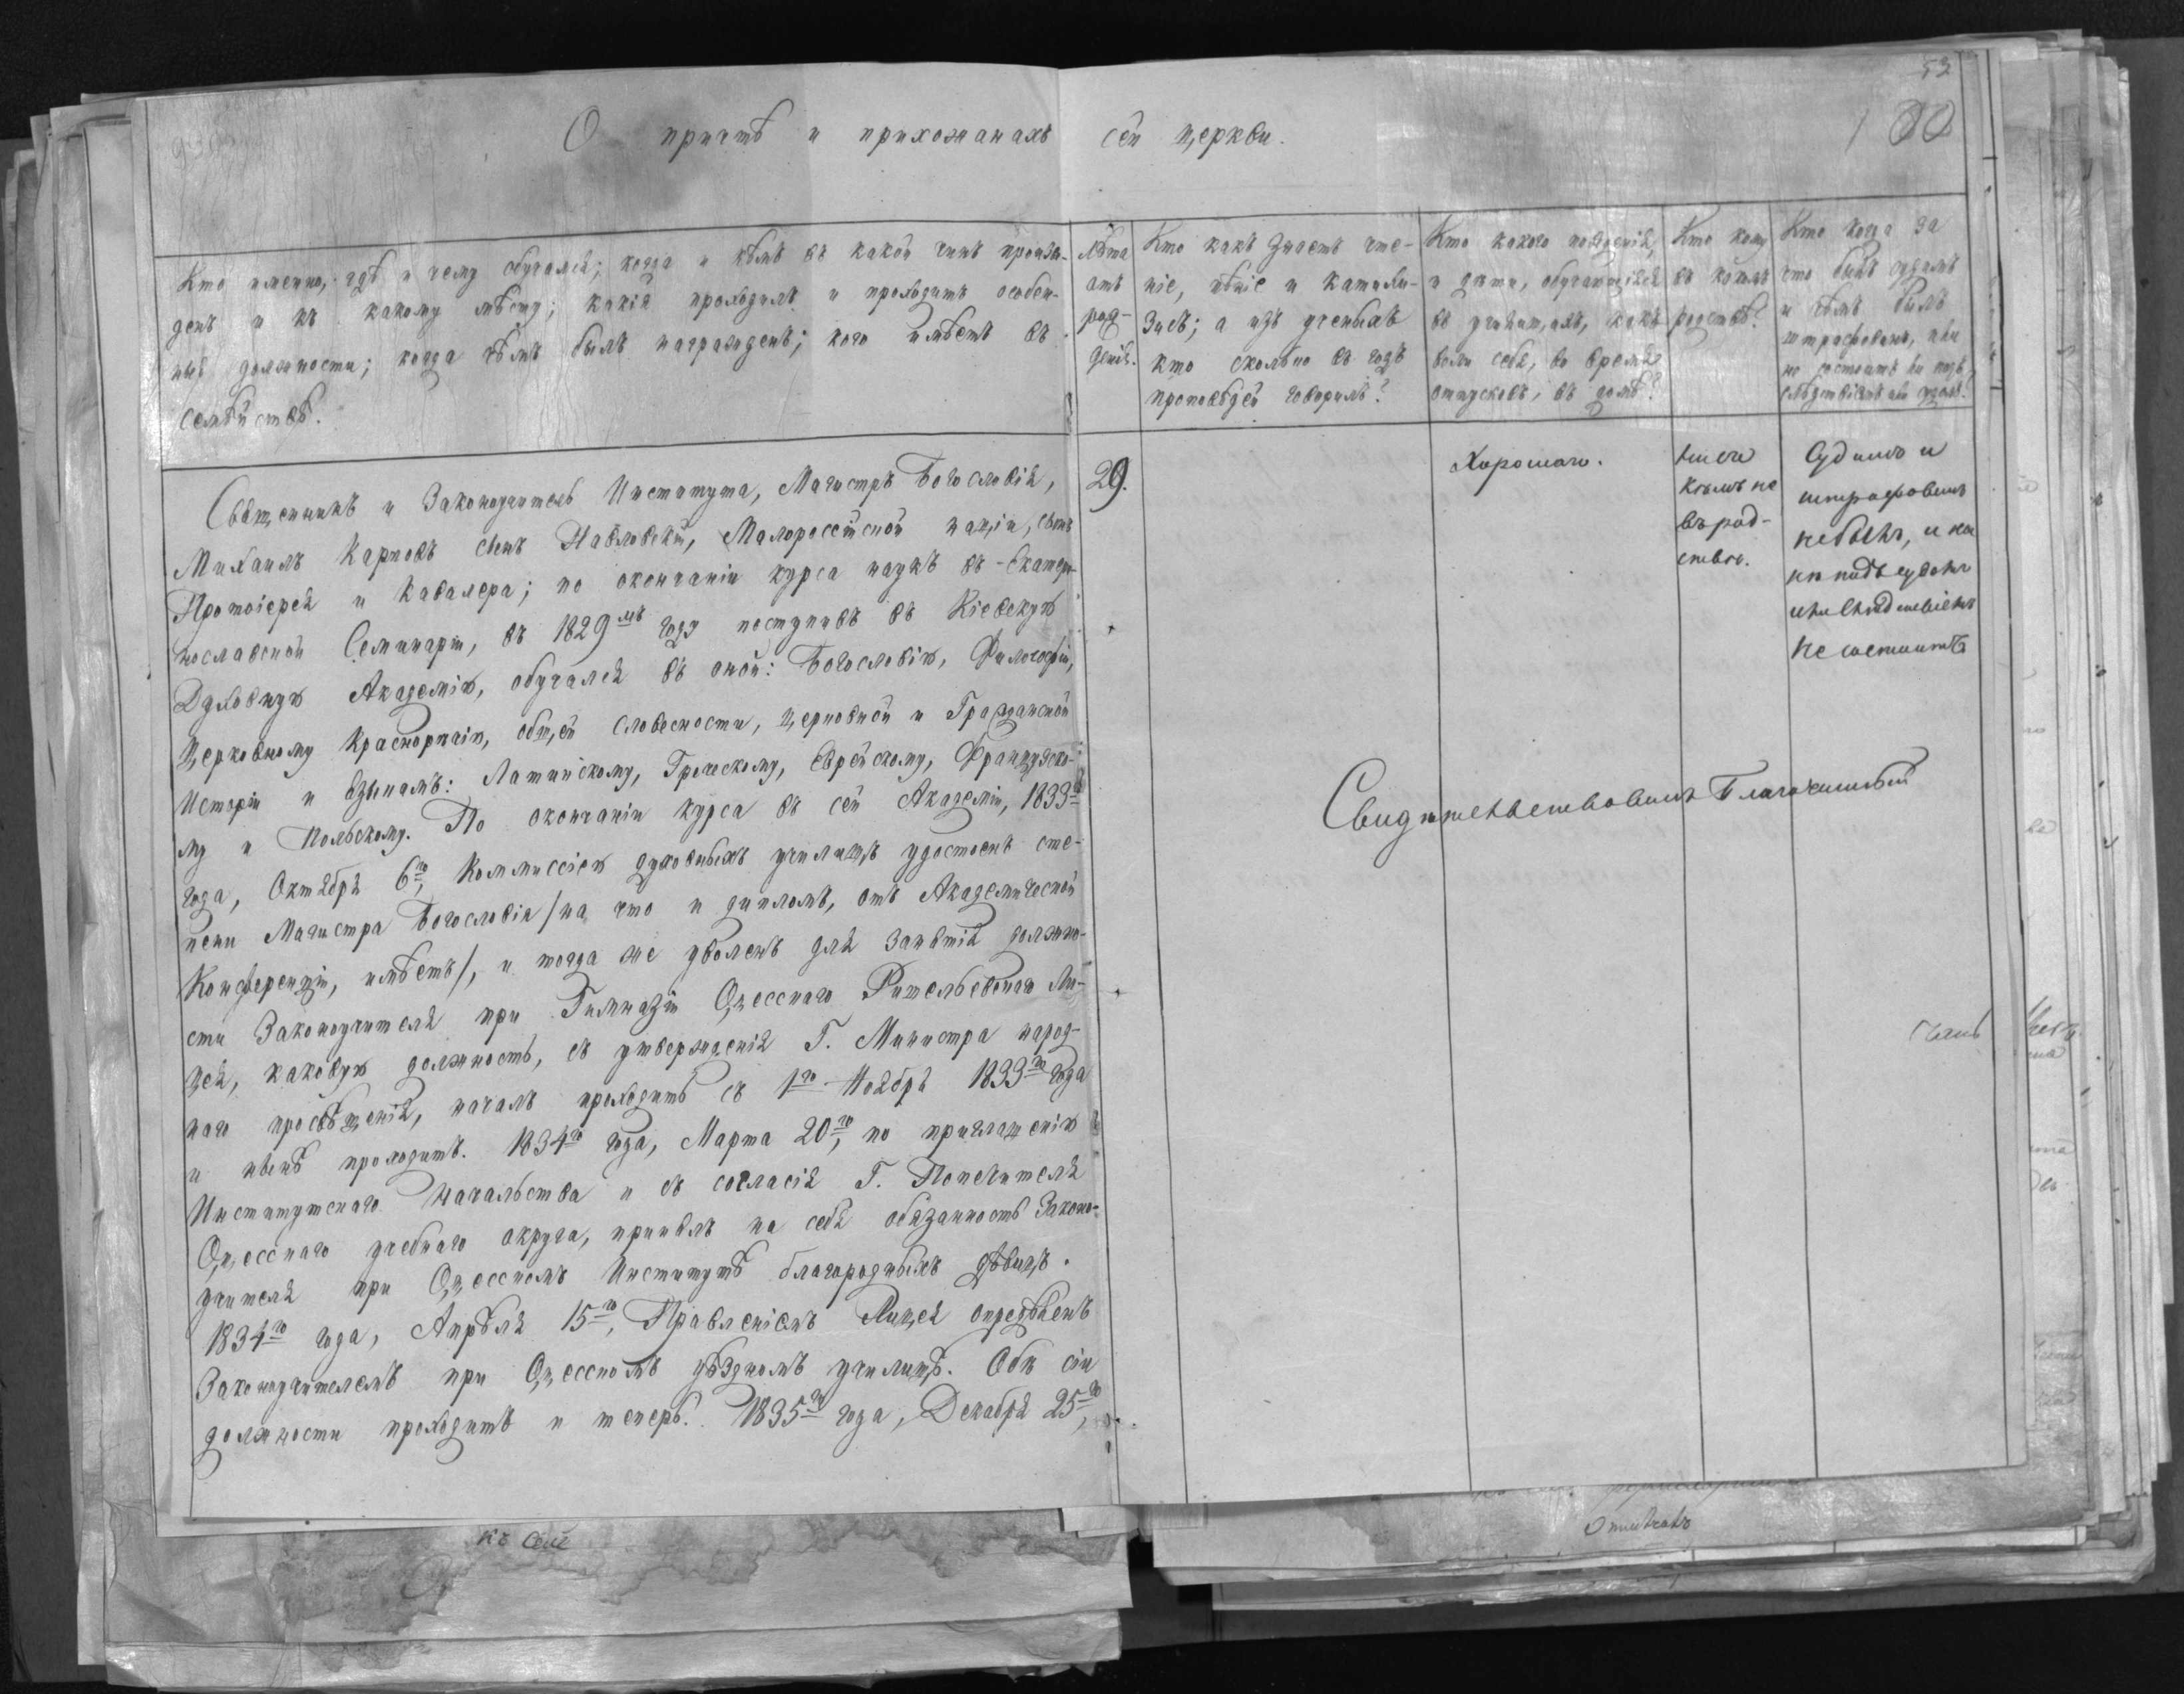 53
100
О причтѣ и прихожанахъ сей церкви.
Кто именно, гдѣ и чему обучался; когда и кѣмъ въ какой чинъ произве-
денъ и къ какому мѣсту; какія проходилъ и проходитъ особен-
ныя должности; когда чѣмъ былъ награжденъ; кого имѣетъ въ
семѣйствѣ.
Лѣта
отъ
рож-
денія.
Кто какъ знаетъ чте-
ніе, пѣніе и катихи-
зисъ; а изъ ученыхъ
кто сколько въ годъ
проповѣдей говорилъ?
Кто какого поведенія,
и дѣти, обучающіяся
въ училищахъ, какъ
вели себя, во время
отпусковъ, въ домѣ?
Кто кому
въ какомъ
родствѣ?
Кто когда за
что былъ судимъ
и чѣмъ былъ
штрафованъ, или
не состоитъ ли подъ
слѣдствіемъ или судомъ.
Священникъ и Законоучитель Института, Магистръ Богословія,
Михаилъ Карповъ сынъ Павловскій, Малороссійской націи, сынъ
Протоіерея и Кавалера; по окончаніи курса наукъ въ Екатери-
нославской Семинаріи, въ 1829мъ году поступивъ въ Кіевскую
Духовную Академію, обучался въ оной: Богословіи, Философіи,
Церковному Краснорѣчію, общей словесности, церковной и Гражданской
Исторіи и языкамъ: Латинскому, Греческому, Еврейскому, Французско-
му и Польскому. По окончаніи курса въ сей Академіи, 1833го
года, Октября 6го, Коммиссіею духовныхъ училищъ удостоенъ сте-
пени Магистра Богословія /на что и дипломъ, отъ Академической
Конференціи, имѣетъ/, и тогда же уволенъ для занятія должно-
сти Законоучителя при Гимназіи Одесскаго Ришельевскаго Ли-
цея, каковую должность, съ утвержденія Г. Министра народ-
наго просвѣщенія, началъ проходить съ 1го Ноября 1833го года
и нынѣ проходитъ. 1834го года, Марта 20го, по приглашенію
Институтскаго Начальства и съ согласія Г. Попечителя
Одесскаго учебнаго округа, принялъ на себя обязанность Законо-
учителя при Одесскомъ Институтѣ благородныхъ дѣвицъ.
1834го года, Апрѣля 15го, Правленіемъ Лицея опредѣленъ
Законоучителемъ при Одесскомъ уѣздномъ училищѣ. Обѣ сіи
должности проходитъ и теперь. 1835го года, Декабря 25го,
29.
Хорошаго.
Ни съ
кѣмъ не
въ род-
ствѣ.
Судимъ и
штрафованъ
не былъ, и ни
подъ судомъ
или слѣдствіемъ
не состоитъ
Свидѣтельствовалъ Благочинный
къ сей